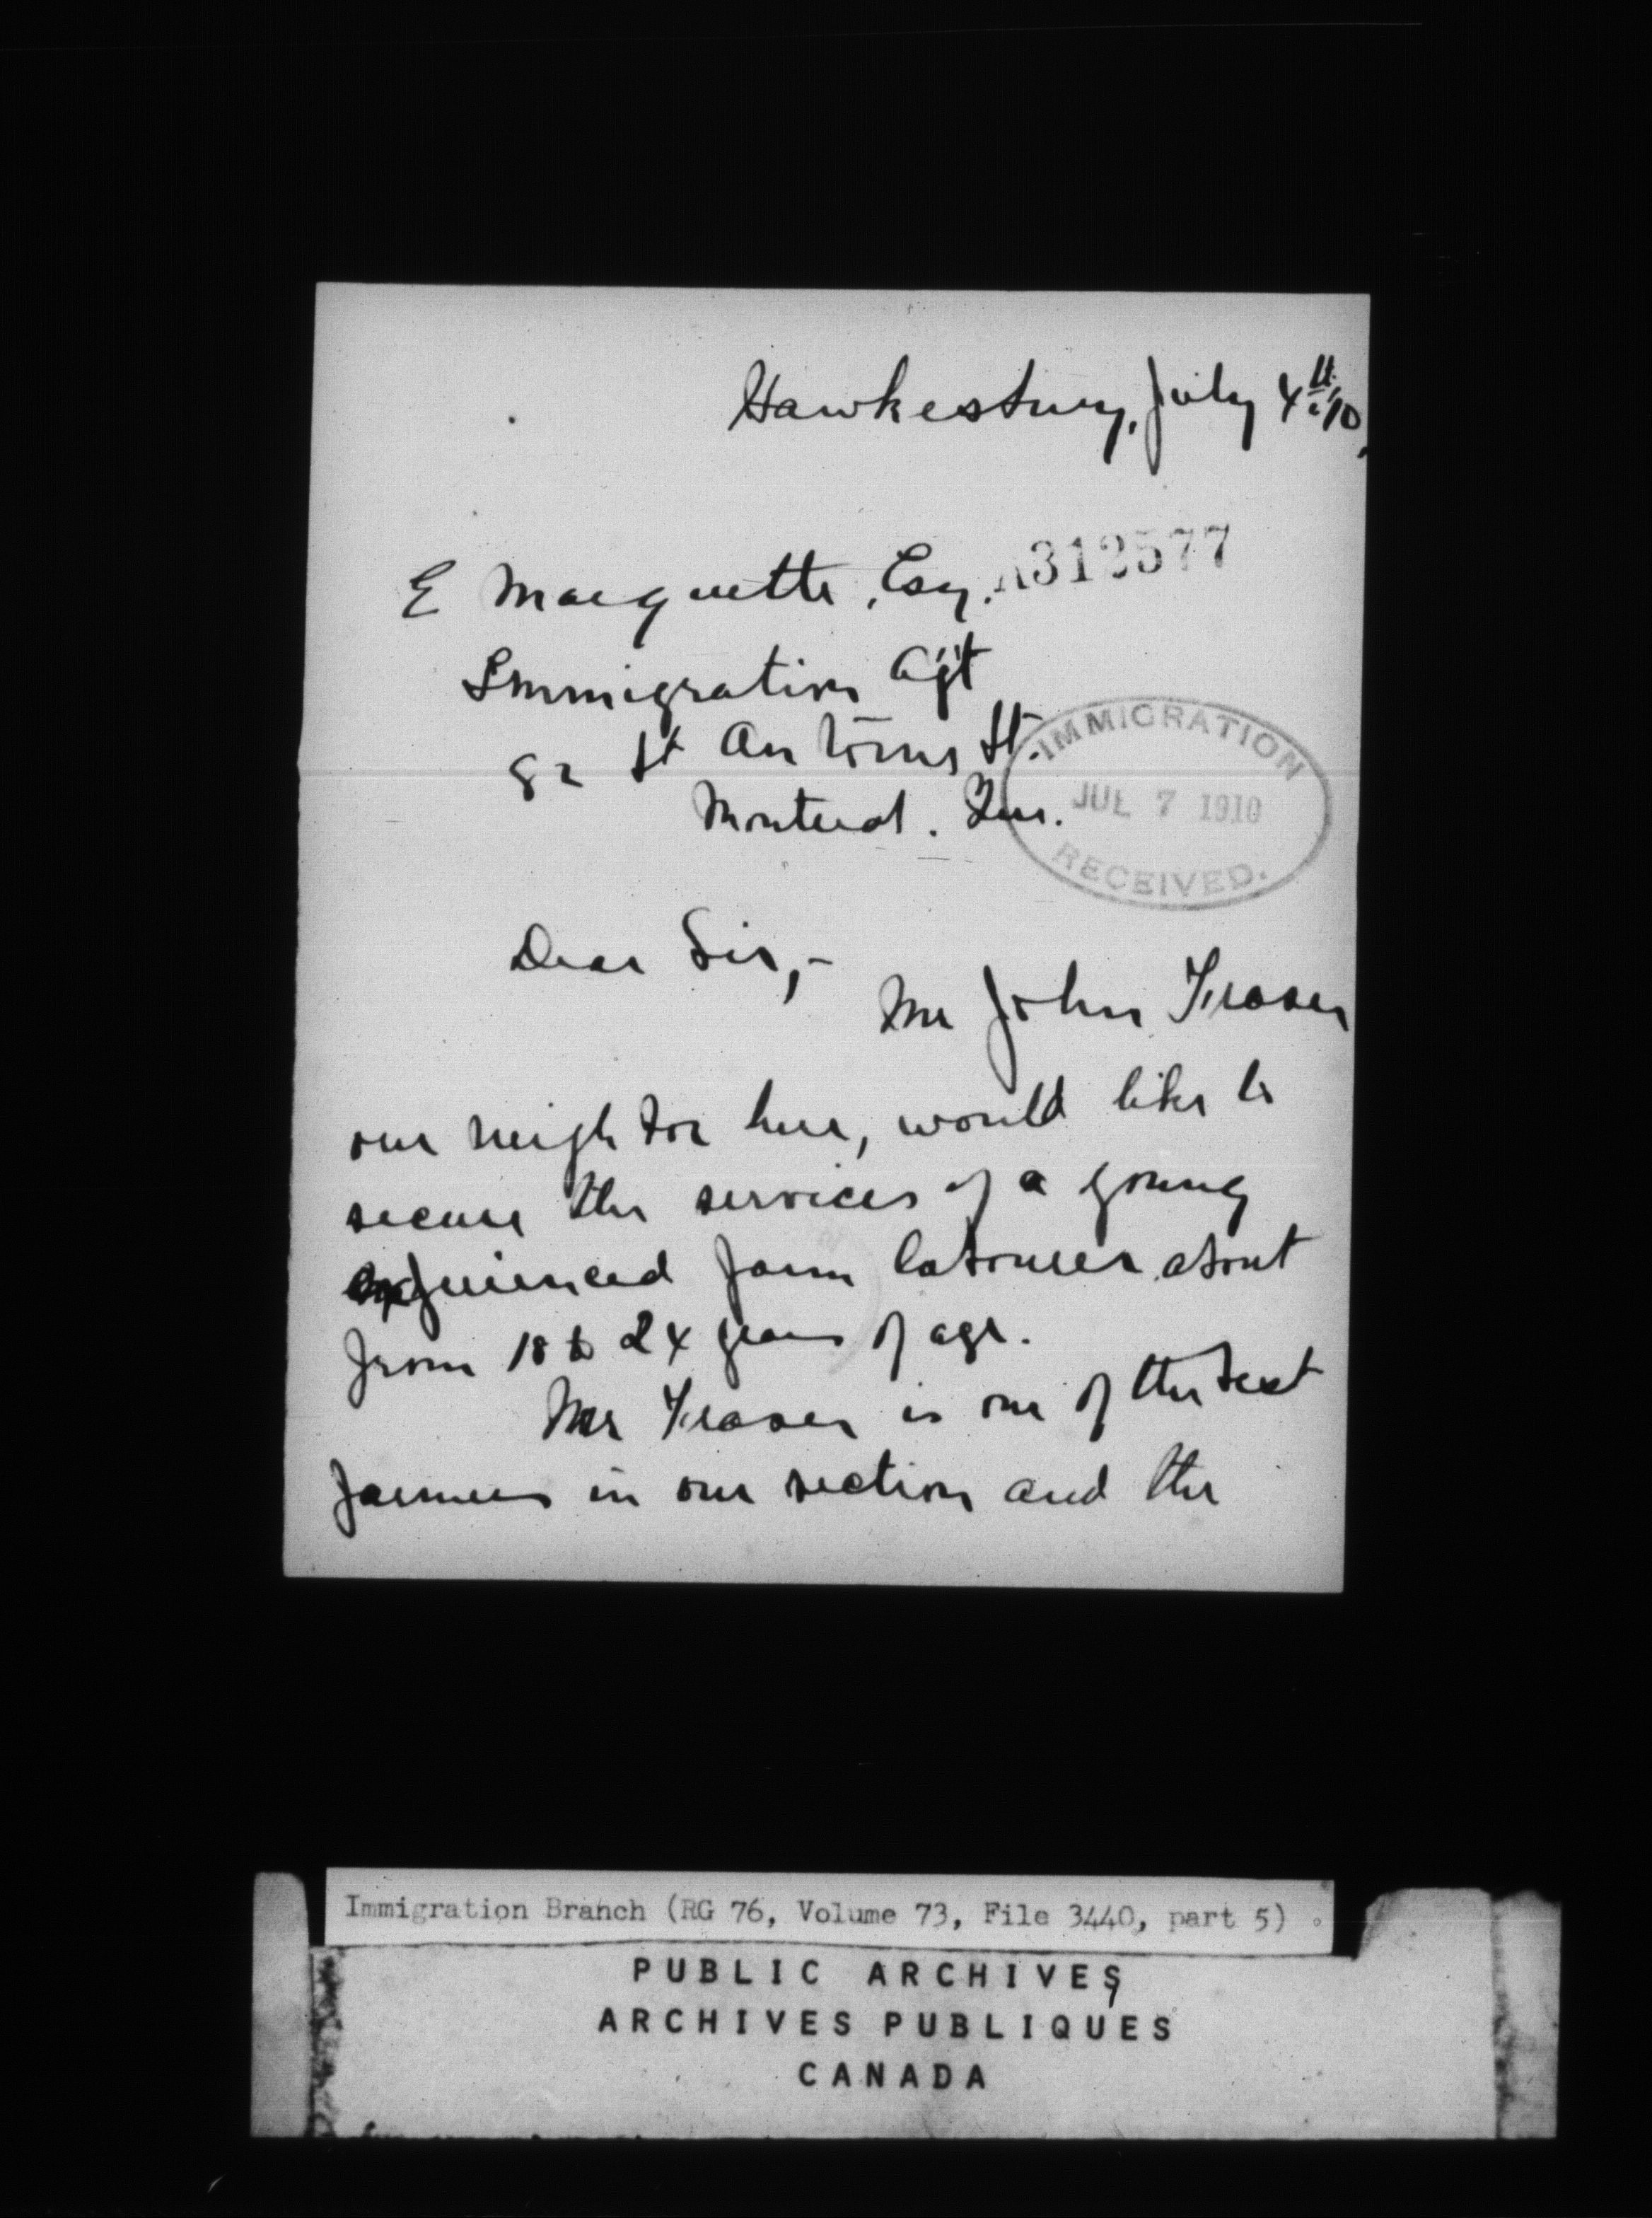 Hawkesbury, July 4th, 10,
A312577
E Marquette, Esq.
Immigration Agt
82 St Antoine St.
Montreal. Que.
IMMIGRATION
JUL 7 1910
RECEIVED.
Dear Sir,-
Mr John Fraser
our neighbor here, would like to
secure the services of a young
experienced farm labourer about
from 18 to 24 years of age.
Mr Fraser is one of the best
farmers in our section and the
Immigration Branch (RG 76, Volume 73, File 3440, part 5)
PUBLIC ARCHIVES
ARCHIVES PUBLIQUES
CANADA